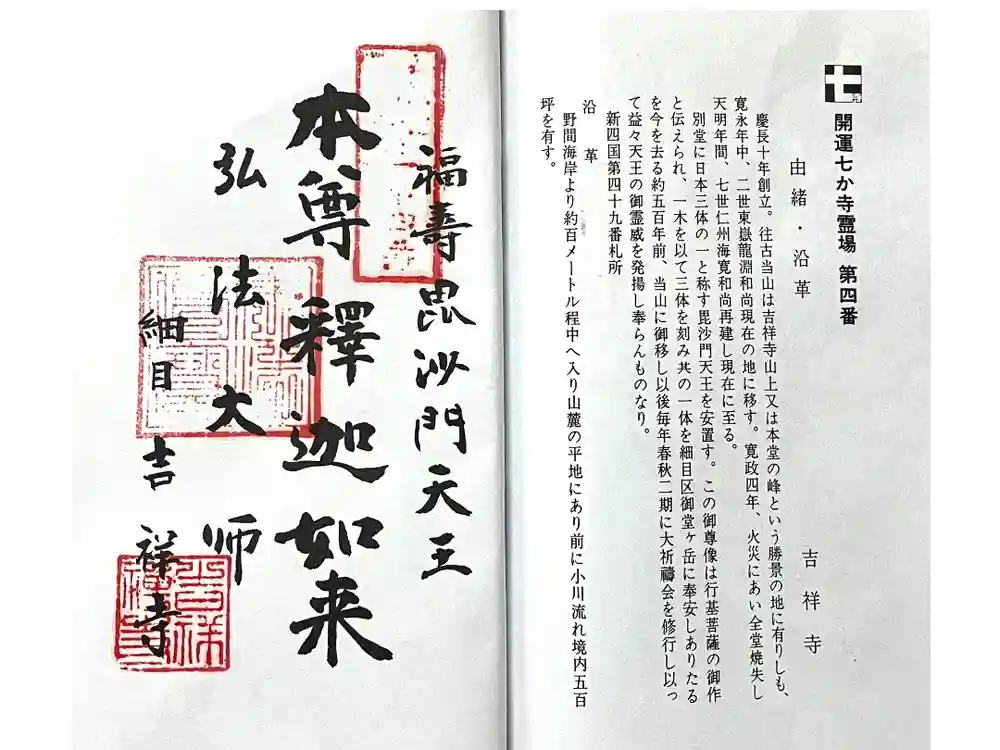 七
開運七か寺霊場 第四番
由緒・沿革
吉祥寺
慶長十年創立。往古当山は吉祥寺山上又は本堂の峰という勝景の地に有りしも、
寛永年中、二世東嶽龍淵和尚現在の地に移す。寛政四年、火災にあい全堂焼失し
天明年間、七世仁州海寛和尚再建し現在に至る。
別堂に日本三体の一と称す毘沙門天王を安置す。この御尊像は行基菩薩の御作
と伝えられ、一木を以て三体を刻み共の一体を細目区御堂ヶ岳に奉安しありたる
を今を去る約五百年前、当山に御移し以後毎年春秋二期に大祈禱会を修行し以っ
て益々天王の御霊威を発揚し奉らんものなり。
新四国第四十九番札所
沿革
野間海岸より約百メートル程中へ入り山麓の平地にあり前に小川流れ境内五百
坪を有す。
福壽毘沙門天王
本尊釋迦如来
弘法大師
細目吉祥寺
吉祥